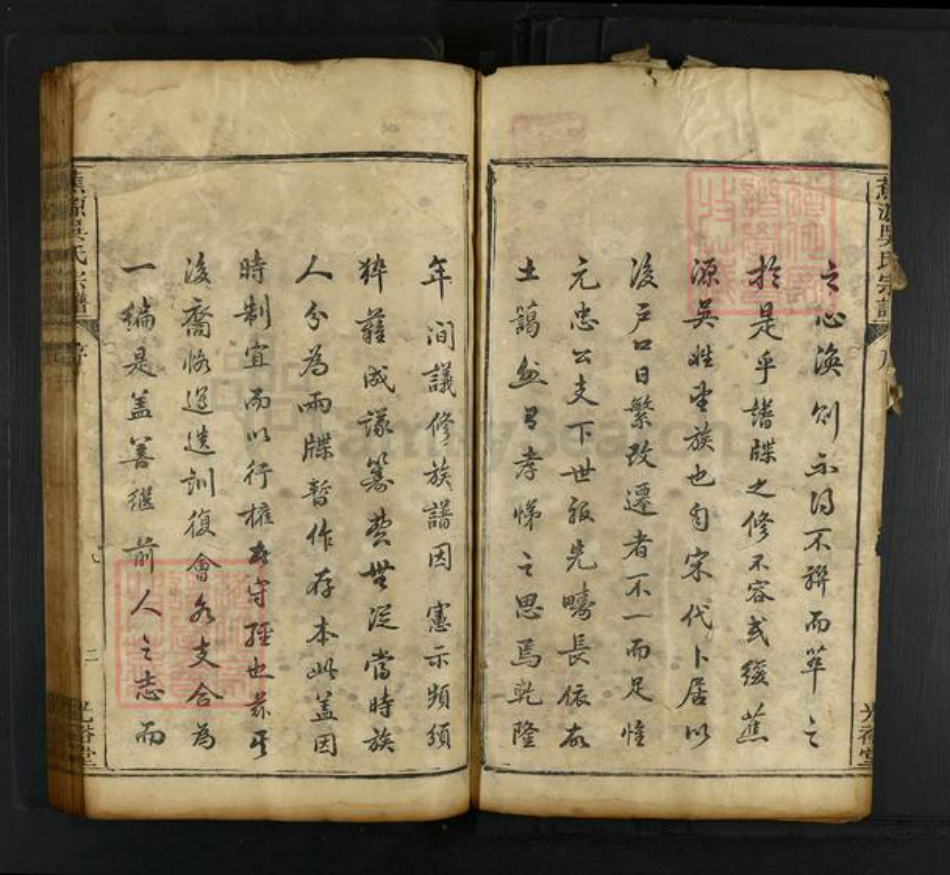 蕉源吳氏宗譜
之心渙則不得不聯而萃之
於是乎譜牒之修不容或緩蕉
源吳姓望族也自宋代卜居以
後戶口日繁改遷者不一而足惟
元忠公支下世服先疇長依故
土藹然有孝悌之思焉乾隆
年間議修族譜因憲示頻頒
猝難成議纂世從當時族
人分為兩牒暫作存本此蓋因
時制宜而以行權守經也茲其
後裔恪遵遺訓復會各支合為
一編是蓋善繼前人之志而
蕉源吳氏宗譜
序
二
光裕堂
光裕堂
FamilySearch